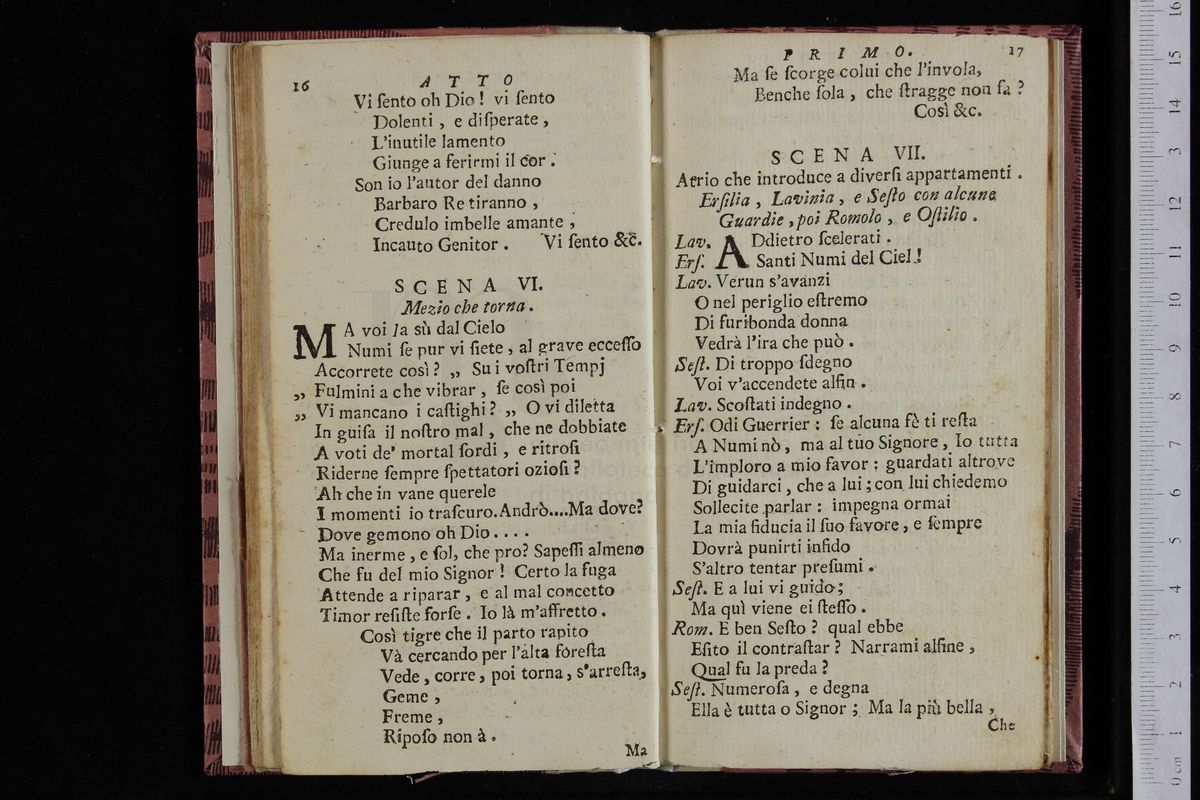 16 ATTO
Vi ſento oh Dio! vi ſento
Dolenti, e diſperate,
L'inutile lamento
Giunge a ferirmi il cor.
Son io l'autor del danno
Barbaro Re tiranno,
Credulo imbelle amante,
Incauto Genitor. Vi ſento &c.
SCENA VI.
Mezio che torna.
MA voi la sù dal Cielo
Numi ſe pur vi ſiete, al grave ecceſſo
Accorrete così? „ Su i voſtri Tempj
„ Fulmini a che vibrar, ſe così poi
„ Vi mancano i caſtighi? „ O vi diletta
In guiſa il noſtro mal, che ne dobbiate
A voti de' mortal ſordi, e ritroſi
Riderne ſempre ſpettatori ozioſi?
Ah che in vane querele
I momenti io traſcuro. Andrò....Ma dove?
Dove gemono oh Dio....
Ma inerme, e ſol, che pro? Sapeſſi almeno
Che fu del mio Signor! Certo la fuga
Attende a riparar, e al mal concetto
Timor reſiſte forſe. Io là m'affretto.
Così tigre che il parto rapito
Và cercando per l'alta foreſta
Vede, corre, poi torna, s'arreſta,
Geme,
Freme,
Ripoſo non à.
Ma
PRIMO. 17
Ma ſe ſcorge colui che l'invola,
Benche ſola, che ſtragge non fa?
Così &c.
SCENA VII.
Atrio che introduce a diverſi appartamenti.
Erſilia, Lavinia, e Seſto con alcune
Guardie, poi Romolo, e Oſtilio.
Lav. ADdietro ſcelerati.
Erſ. Santi Numi del Ciel!
Lav. Verun s'avanzi
O nel periglio eſtremo
Di furibonda donna
Vedrà l'ira che può.
Seſt. Di troppo ſdegno
Voi v'accendete alfin.
Lav. Scoſtati indegno.
Erſ. Odi Guerrier: ſe alcuna fè ti reſta
A Numi nò, ma al tuo Signore, Io tutta
L'imploro a mio favor: guardati altrove
Di guidarci, che a lui; con lui chiedemo
Sollecite parlar: impegna ormai
La mia fiducia il ſuo favore, e ſempre
Dovrà punirti infido
S'altro tentar preſumi.
Seſt. E a lui vi guido;
Ma quì viene ei ſteſſo.
Rom. E ben Seſto? qual ebbe
Eſito il contraſtar? Narrami alfine,
Qual fu la preda?
Seſt. Numeroſa, e degna
Ella è tutta o Signor; Ma la più bella,
Che
16
15
14
13
12
11
10
9
8
7
6
5
4
3
2
1
0 cm